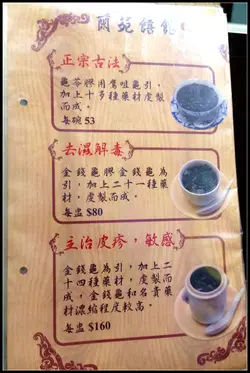 蘭苑饎館
正宗古法
龜苓膠用鷹咀龜引，
加上十多種藥材虔製
而成。
每碗 53
去濕解毒
金錢龜膠金錢龜為
引，加上二十一種藥
材，虔製而成。
每盅 $80
主治皮疹，敏感
金錢龜為引，加上二
十四種藥材，虔製而
成，金錢龜和名貴藥
材濃縮程度較高。
每盅 $160